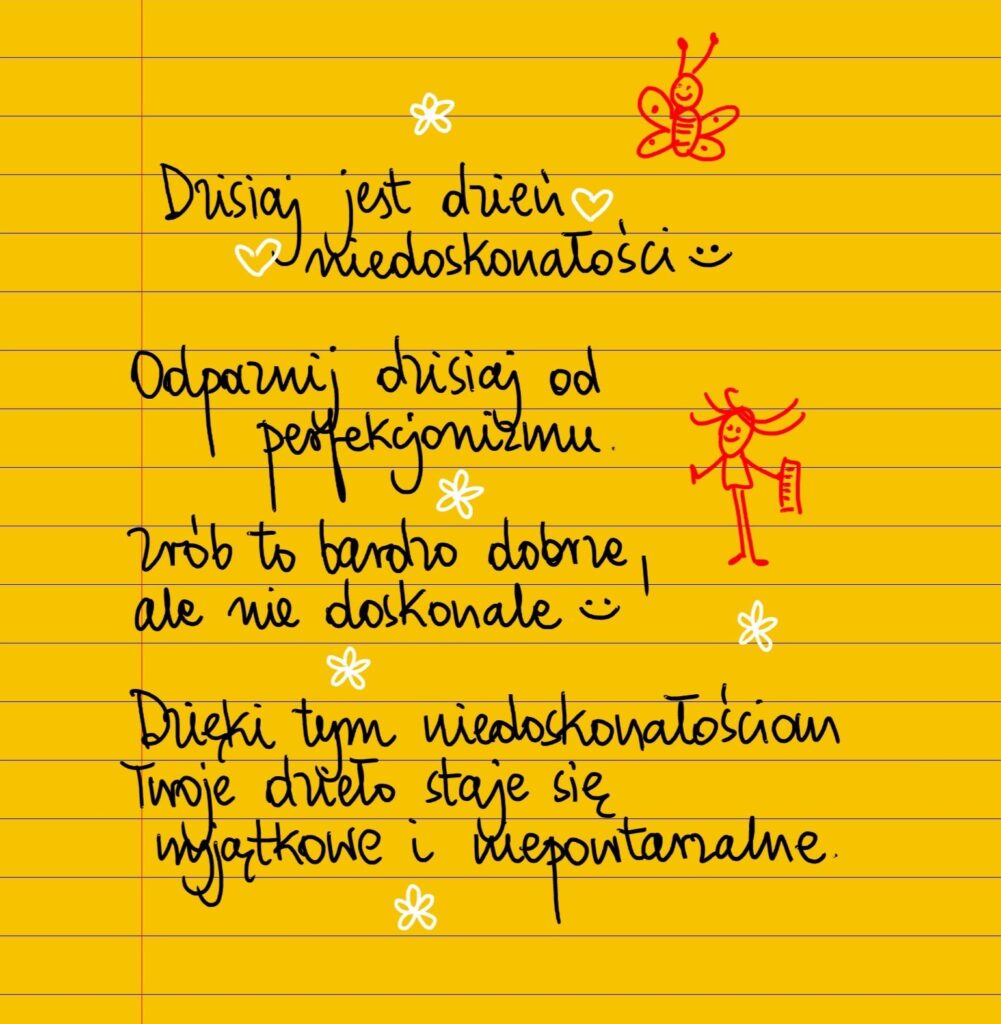 Dzisiaj jest dzień
niedoskonałości
Odpocznij dzisiaj od
perfekcjonizmu.
zrób to bardzo dobrze,
ale nie doskonale
Dzięki tym niedoskonałościom
Twoje dzieło staje się
wyjątkowe i niepowtarzalne.